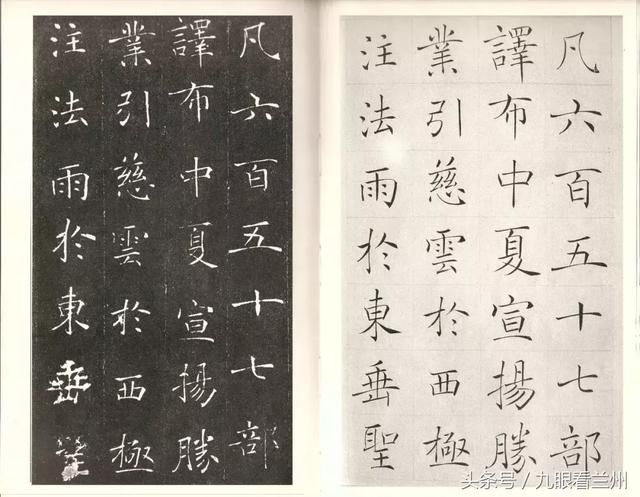 凡六百五十七部
譯布中夏宣揚勝
業引慈雲於西極
注法雨於東垂聖
凡六百五十七部
譯布中夏宣揚勝
業引慈雲於西極
注法雨於東垂聖
头条号/九眼看兰州